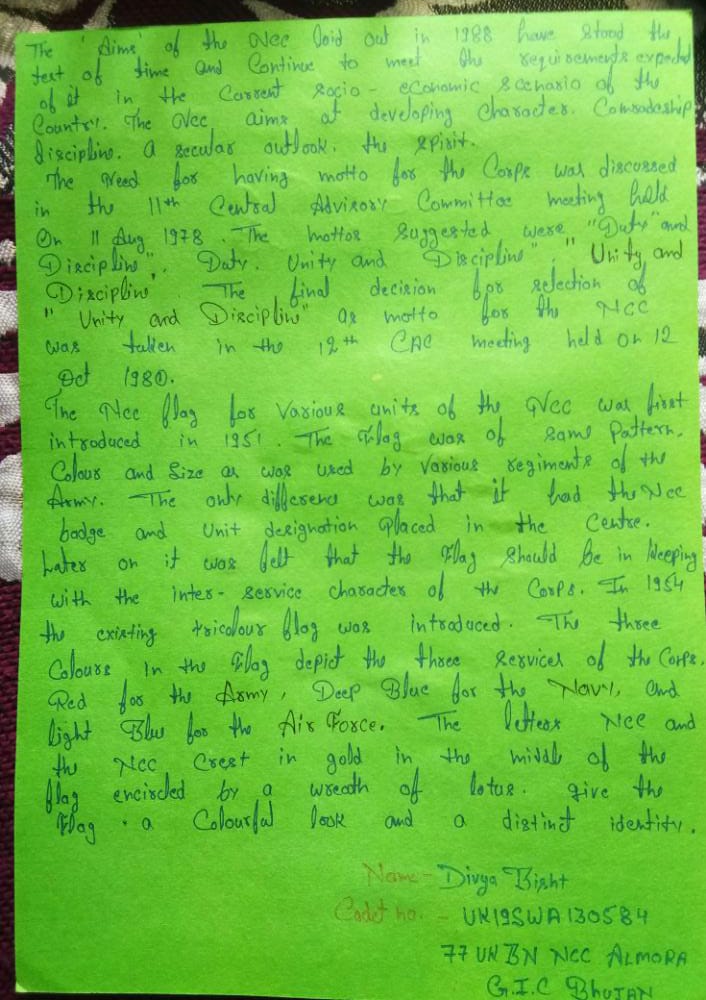 The 'Aims' of the Ncc laid out in 1988 have stood the
test of time and Continue to meet the requirements expected
of it in the Current socio - economic scenario of the
Country. The Ncc aims at developing Character. Comradeship
discipline. a secular outlook. the spirit.
The Need for having motto for the Corps was discussed
in the 11th Central Advisory Committee meeting held
On 11 Aug 1978. The mottos suggested were "Duty" and
Discipline", Duty. Unity and Discipline", "Unity and
Discipline. The final decision for selection of
" Unity and Discipline" as motto for the NCC
was taken in the 12th CAC meeting held on 12
Oct 1980.
The Ncc flag for Various units of the Ncc was first
introduced in 1951. The Flag was of same Pattern.
Colour and Size as was used by Various regiments of the
Army. The only difference was that it had the Ncc
badge and Unit designation Placed in the Centre.
Later on it was felt that the Flag should be in keeping
with the inter- service character of the Corps. In 1954
the existing tricolour flag was introduced. The three
Colours in the Flag depict the three services of the Corps.
Red for the Army, Deep Blue for the Navy, and
light Blue for the Air Force. The letters Ncc and
the Ncc Crest in gold in the middle of the
flag encircled by a wreath of lotus. give the
Flag a Colourful look and a distinct identity.
Name - Divya Bisht
Cadet no. - UK19SWA130584
77 UK BN NCC ALMORA
G.I.C BHUJAN